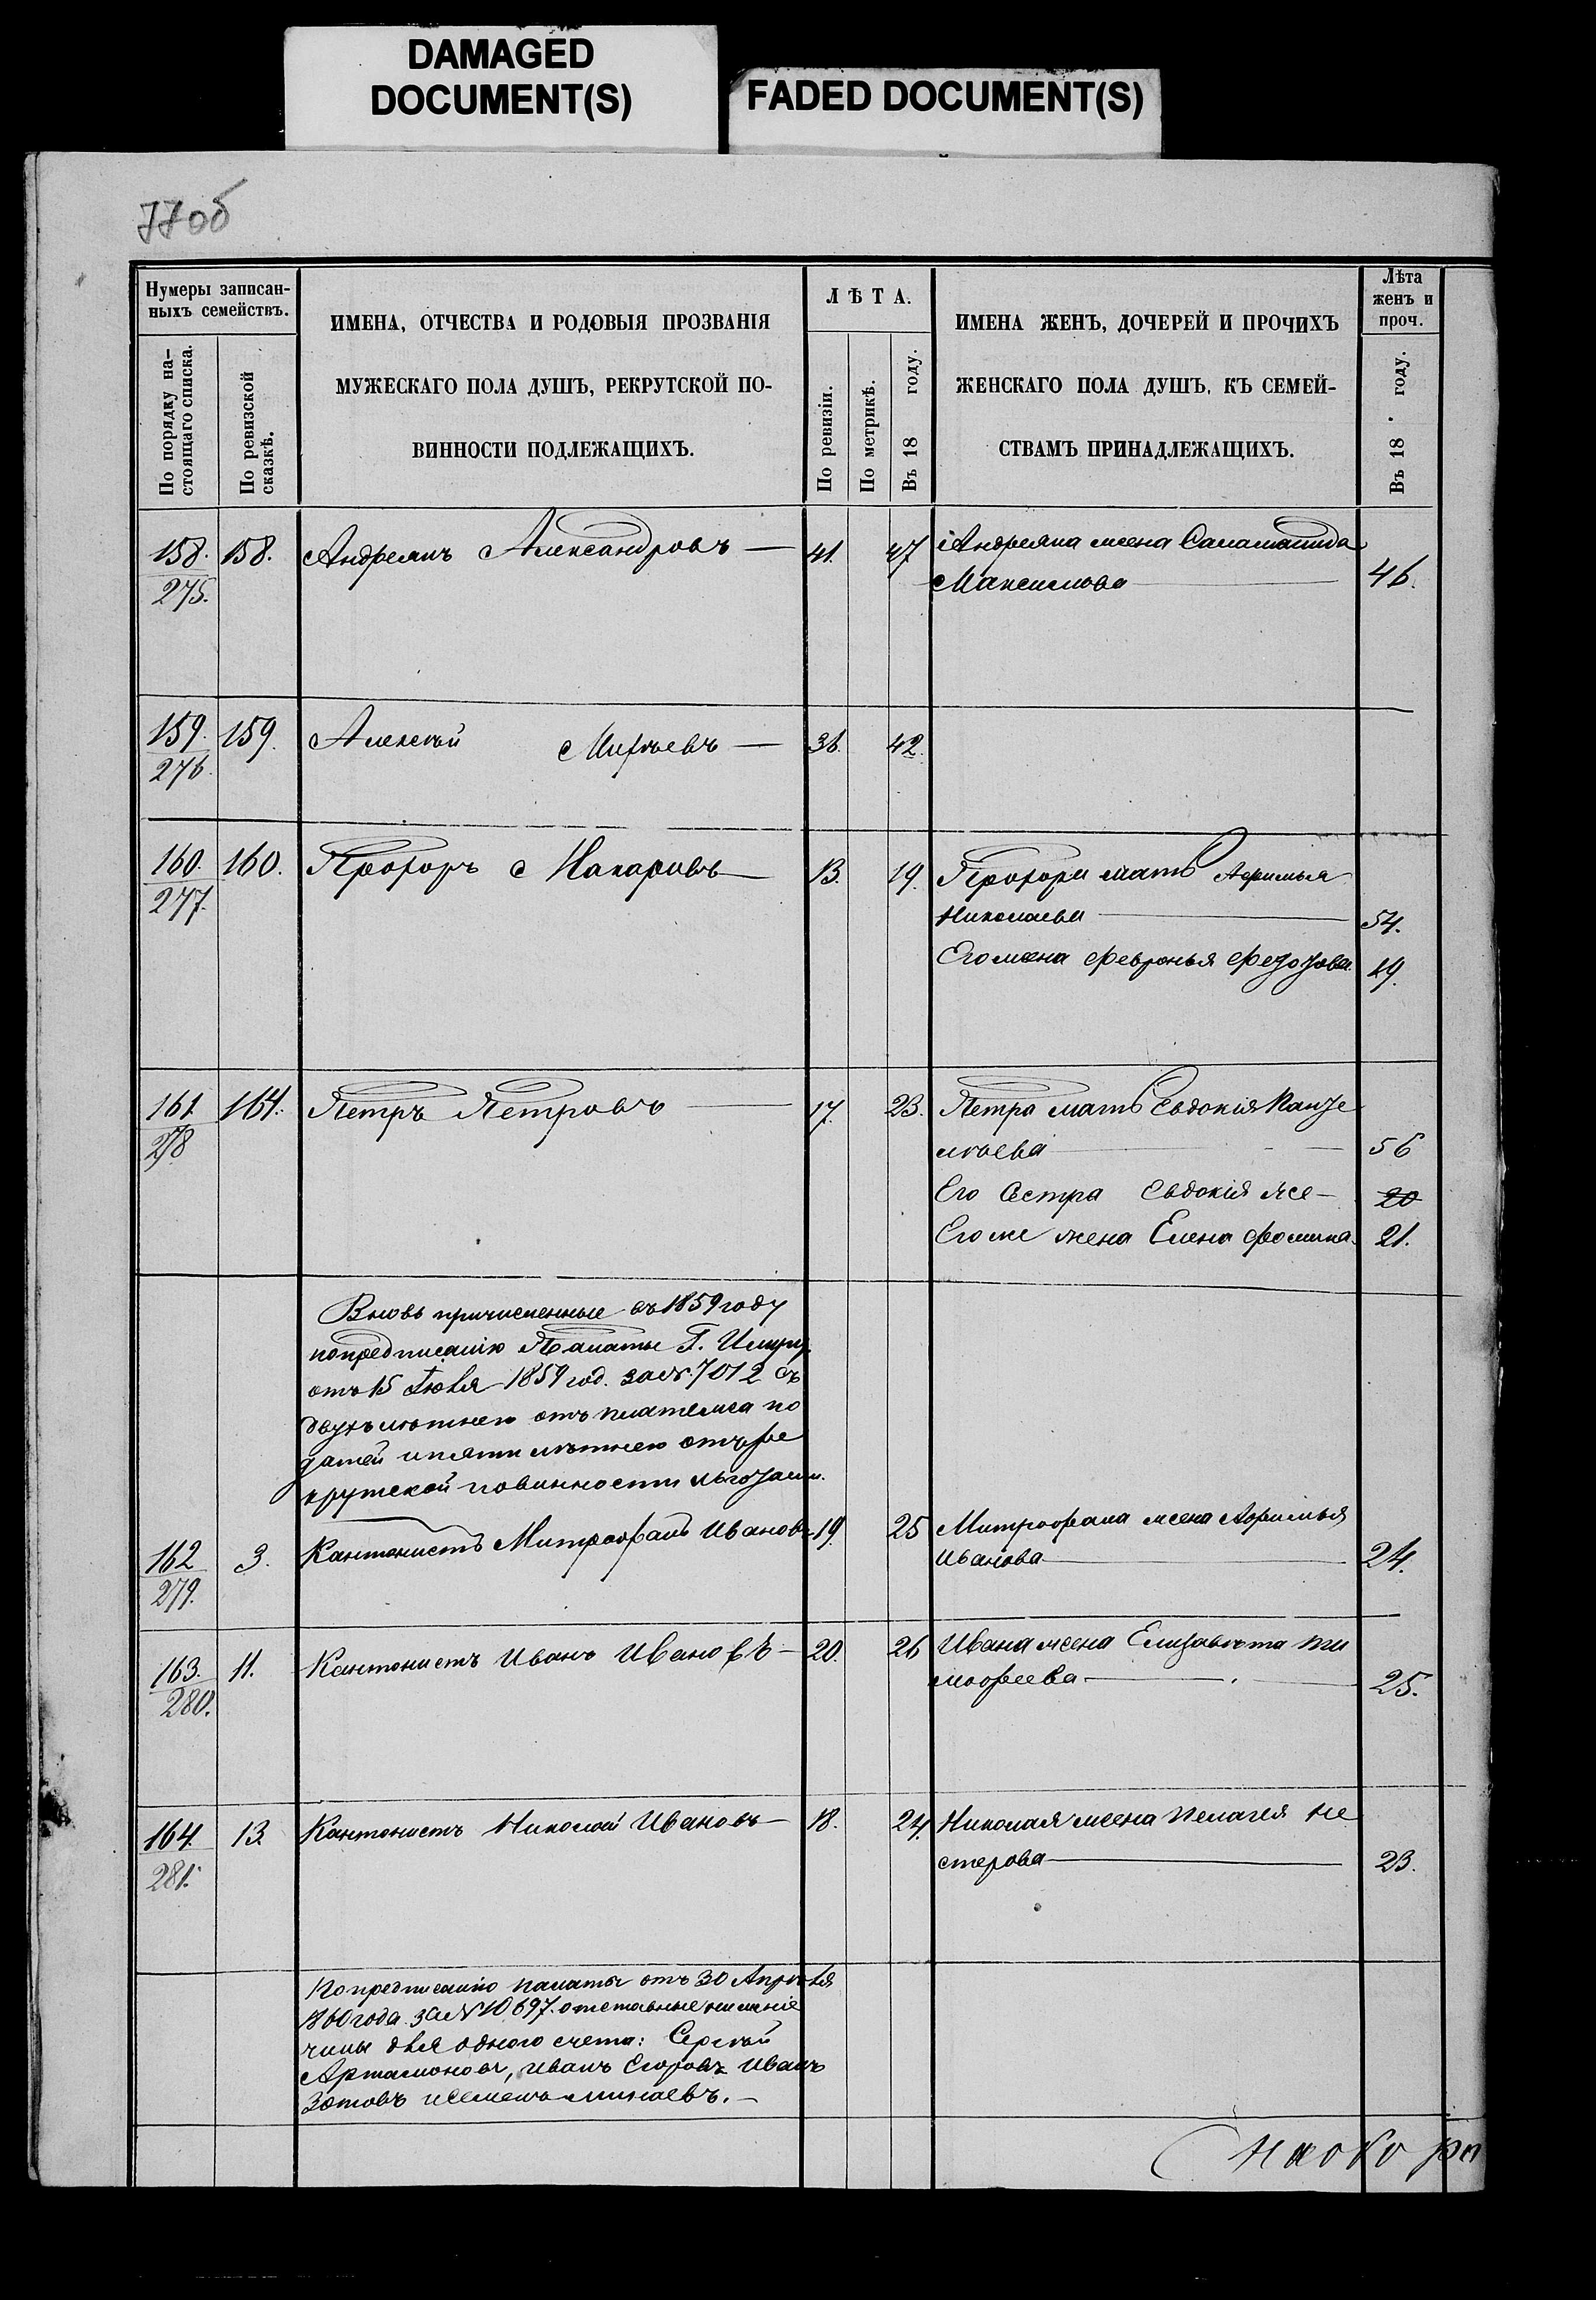 DAMAGED
DOCUMENT(S)
FADED DOCUMENT(S)
77об
Нумеры записан-
ныхъ семействъ.
По порядку на-
стоящаго списка.
По ревизской
сказкѣ.
ИМЕНА, ОТЧЕСТВА И РОДОВЫЯ ПРОЗВАНІЯ
МУЖЕСКАГО ПОЛА ДУШЪ, РЕКРУТСКОЙ ПО-
ВИННОСТИ ПОДЛЕЖАЩИХЪ.
ЛѢТА.
По ревизіи.
По метрикѣ.
Въ 18 году.
ИМЕНА ЖЕНЪ, ДОЧЕРЕЙ И ПРОЧИХЪ
ЖЕНСКАГО ПОЛА ДУШЪ, КЪ СЕМЕЙ-
СТВАМЪ ПРИНАДЛЕЖАЩИХЪ.
Лѣта
женъ и
проч.
Въ 18 году.
158. 158. Андреянъ Александровъ — 41. 47 Андреяна жена Саламанида
275. Максимова — 46.
159. 159. Алексѣй — 36. 42.
276.
160. 160. Прохоръ Макаровъ — 13. 19. Прохора мать Афимья
277. Николаева — 54.
Его жена Февронья 19.
161. 161. Петръ Петровъ — 17. 23. Петра мать Евдокія Панте
278 лѣева — 56
Его Сестра Евдокія же — 20
Его же жена Елена Фомина. 21.
Вновь причисленные въ 1859 году
по предписанію Палаты Г. Имущ.
отъ 15 Іюля 1859 год. за № 7012 съ
двухълѣтнею отъ платежа по
датей и пяти лѣтнею отъ ре
крутской повинности льготами.
162 3. Кантонистъ Митрофанъ Ивановъ 19. 25 Митрофана жена Афимья
279. Иванова — 24.
163. 11. Кантонистъ Иванъ Ивановъ — 20. 26 Ивана жена Елизавѣта Ти
280. мофеева — 25.
164. 13. Кантонистъ Николай Ивановъ — 18. 24. Николая жена Пелагея Не
281. стерова — 23.
По предписанію палаты отъ 30 Апрѣля
1860 года за № 10697. отставные нижніе
чины для одного счета: Сергѣй
Артамоновъ, Иванъ Егоровъ Иванъ
Зотовъ и Семенъ Минаевъ. —